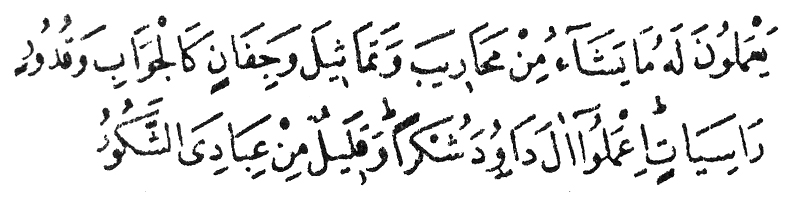 يَعْمَلُونَ لَهُ مَا يَشَآءُ مِنْ مَحَارِيبَ وَتَمَاثِيلَ وَجِفَانٍ كَالْجَوَابِ وَقُدُورٍ
رَاسِيَاتٍ ط اِعْمَلُوٓا اٰلَ دَاوُدَ شُكْرًا ط وَقَلِيلٌ مِنْ عِبَادِىَ الشَّكُورُ